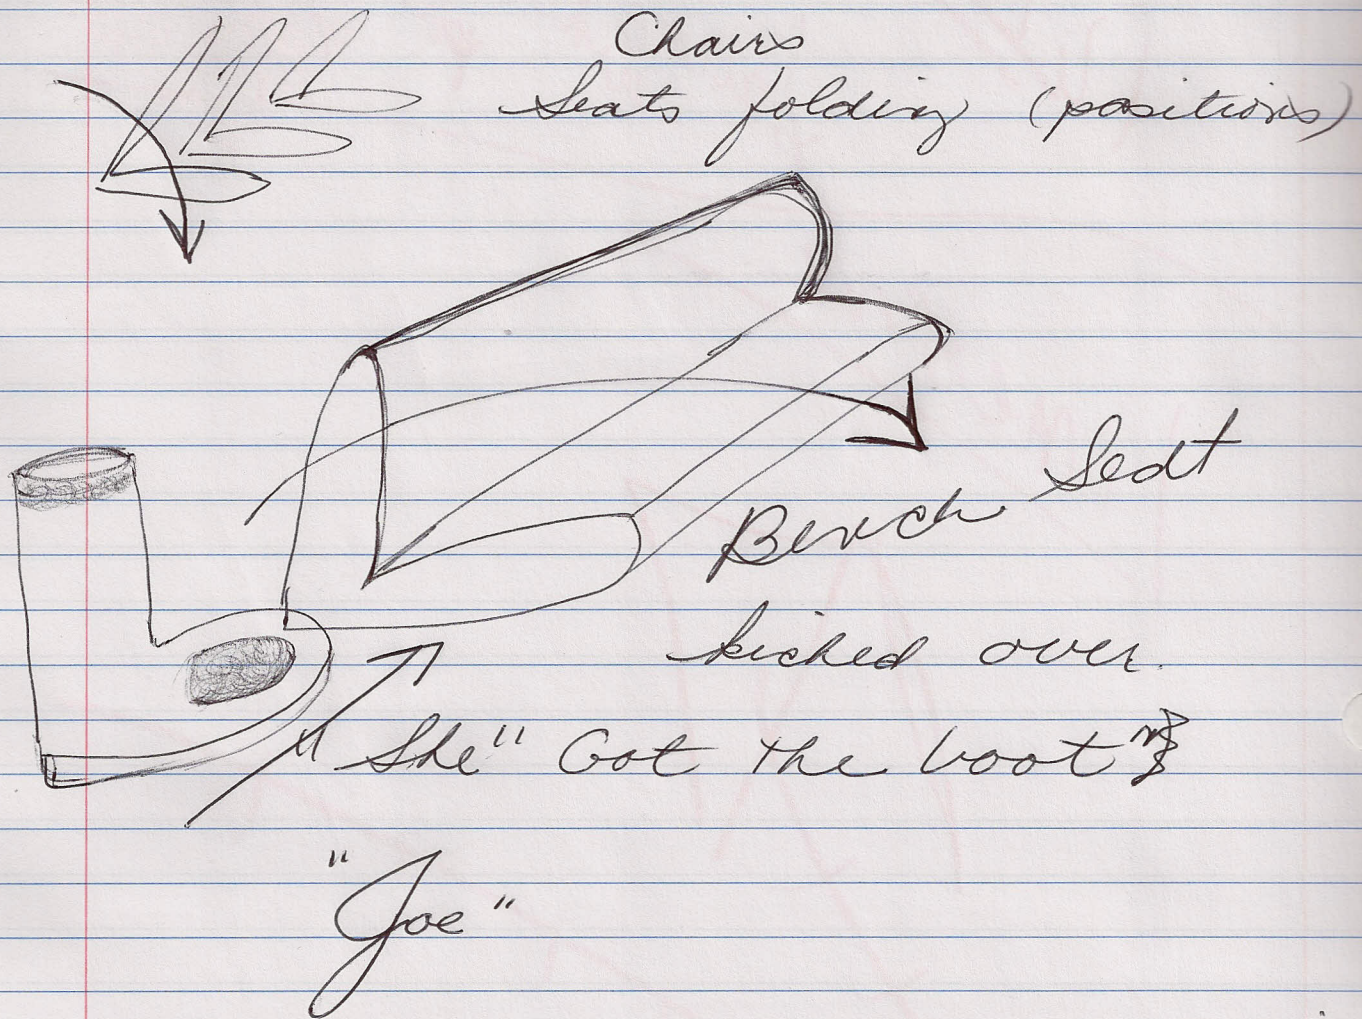 Chairs
Seats folding (positions)
Bench Seat
kicked over.
"She" Got the boot"
"Joe"